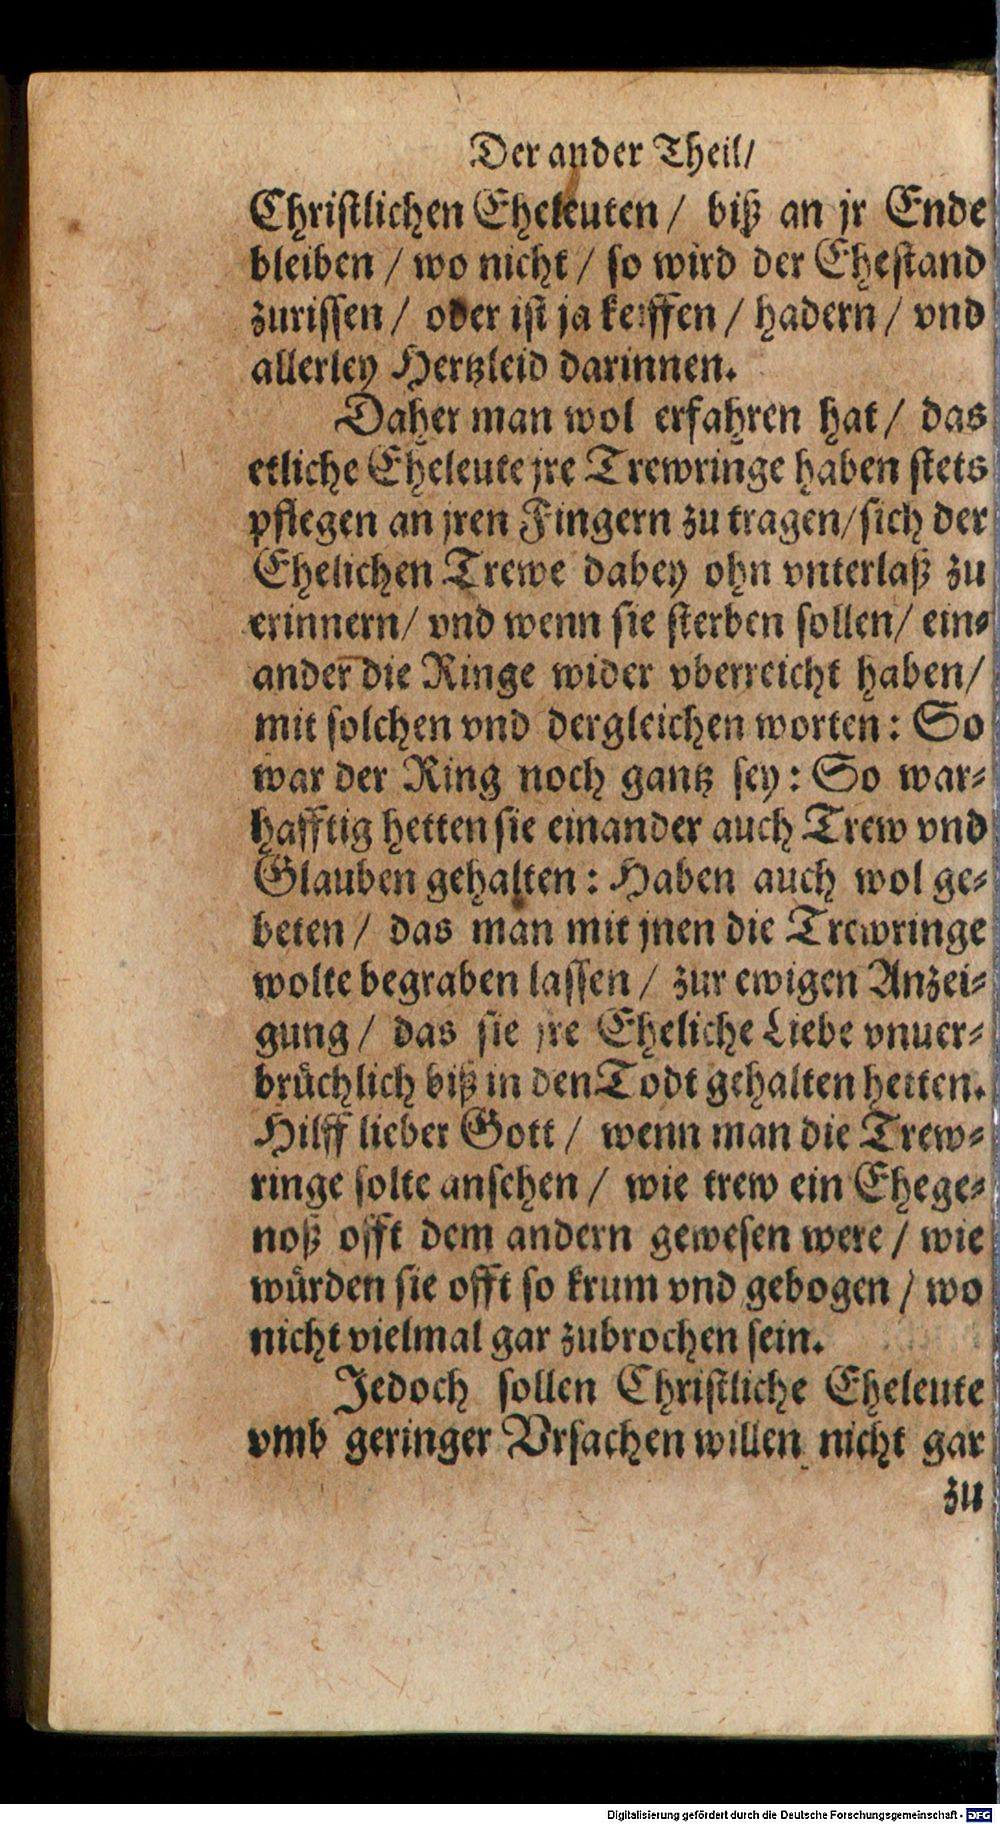 Der ander Theil/
Christlichen Eheleuten / biß an jr Ende
bleiben / wo nicht / so wird der Ehestand
zurissen / oder ist ja keiffen / hadern / vnd
allerley Hertzleid darinnen.
Daher man wol erfahren hat / das
etliche Eheleute jre Trewringe haben stets
pflegen an jren Fingern zu tragen/sich der
Ehelichen Trewe dabey ohn vnterlaß zu
erinnern/ vnd wenn sie sterben sollen/ ein⸗
ander die Ringe wider vberreicht haben/
mit solchen vnd dergleichen worten: So
war der Ring noch gantz sey: So war⸗
hafftig hetten sie einander auch Trew vnd
Glauben gehalten: Haben auch wol ge⸗
beten / das man mit jnen die Trewringe
wolte begraben lassen / zur ewigen Anzei⸗
gung / das sie jre Eheliche Liebe vnuer⸗
brüchlich biß in den Todt gehalten hetten.
Hilff lieber Gott / wenn man die Trew⸗
ringe solte ansehen / wie trew ein Ehege⸗
noß offt dem andern gewesen were / wie
würden sie offt so krum vnd gebogen / wo
nicht vielmal gar zubrochen sein.
Jedoch sollen Christliche Eheleute
vmb geringer Vrsachen willen nicht gar
zu
Digitalisierung gefördert durch die Deutsche Forschungsgemeinschaft - DFG